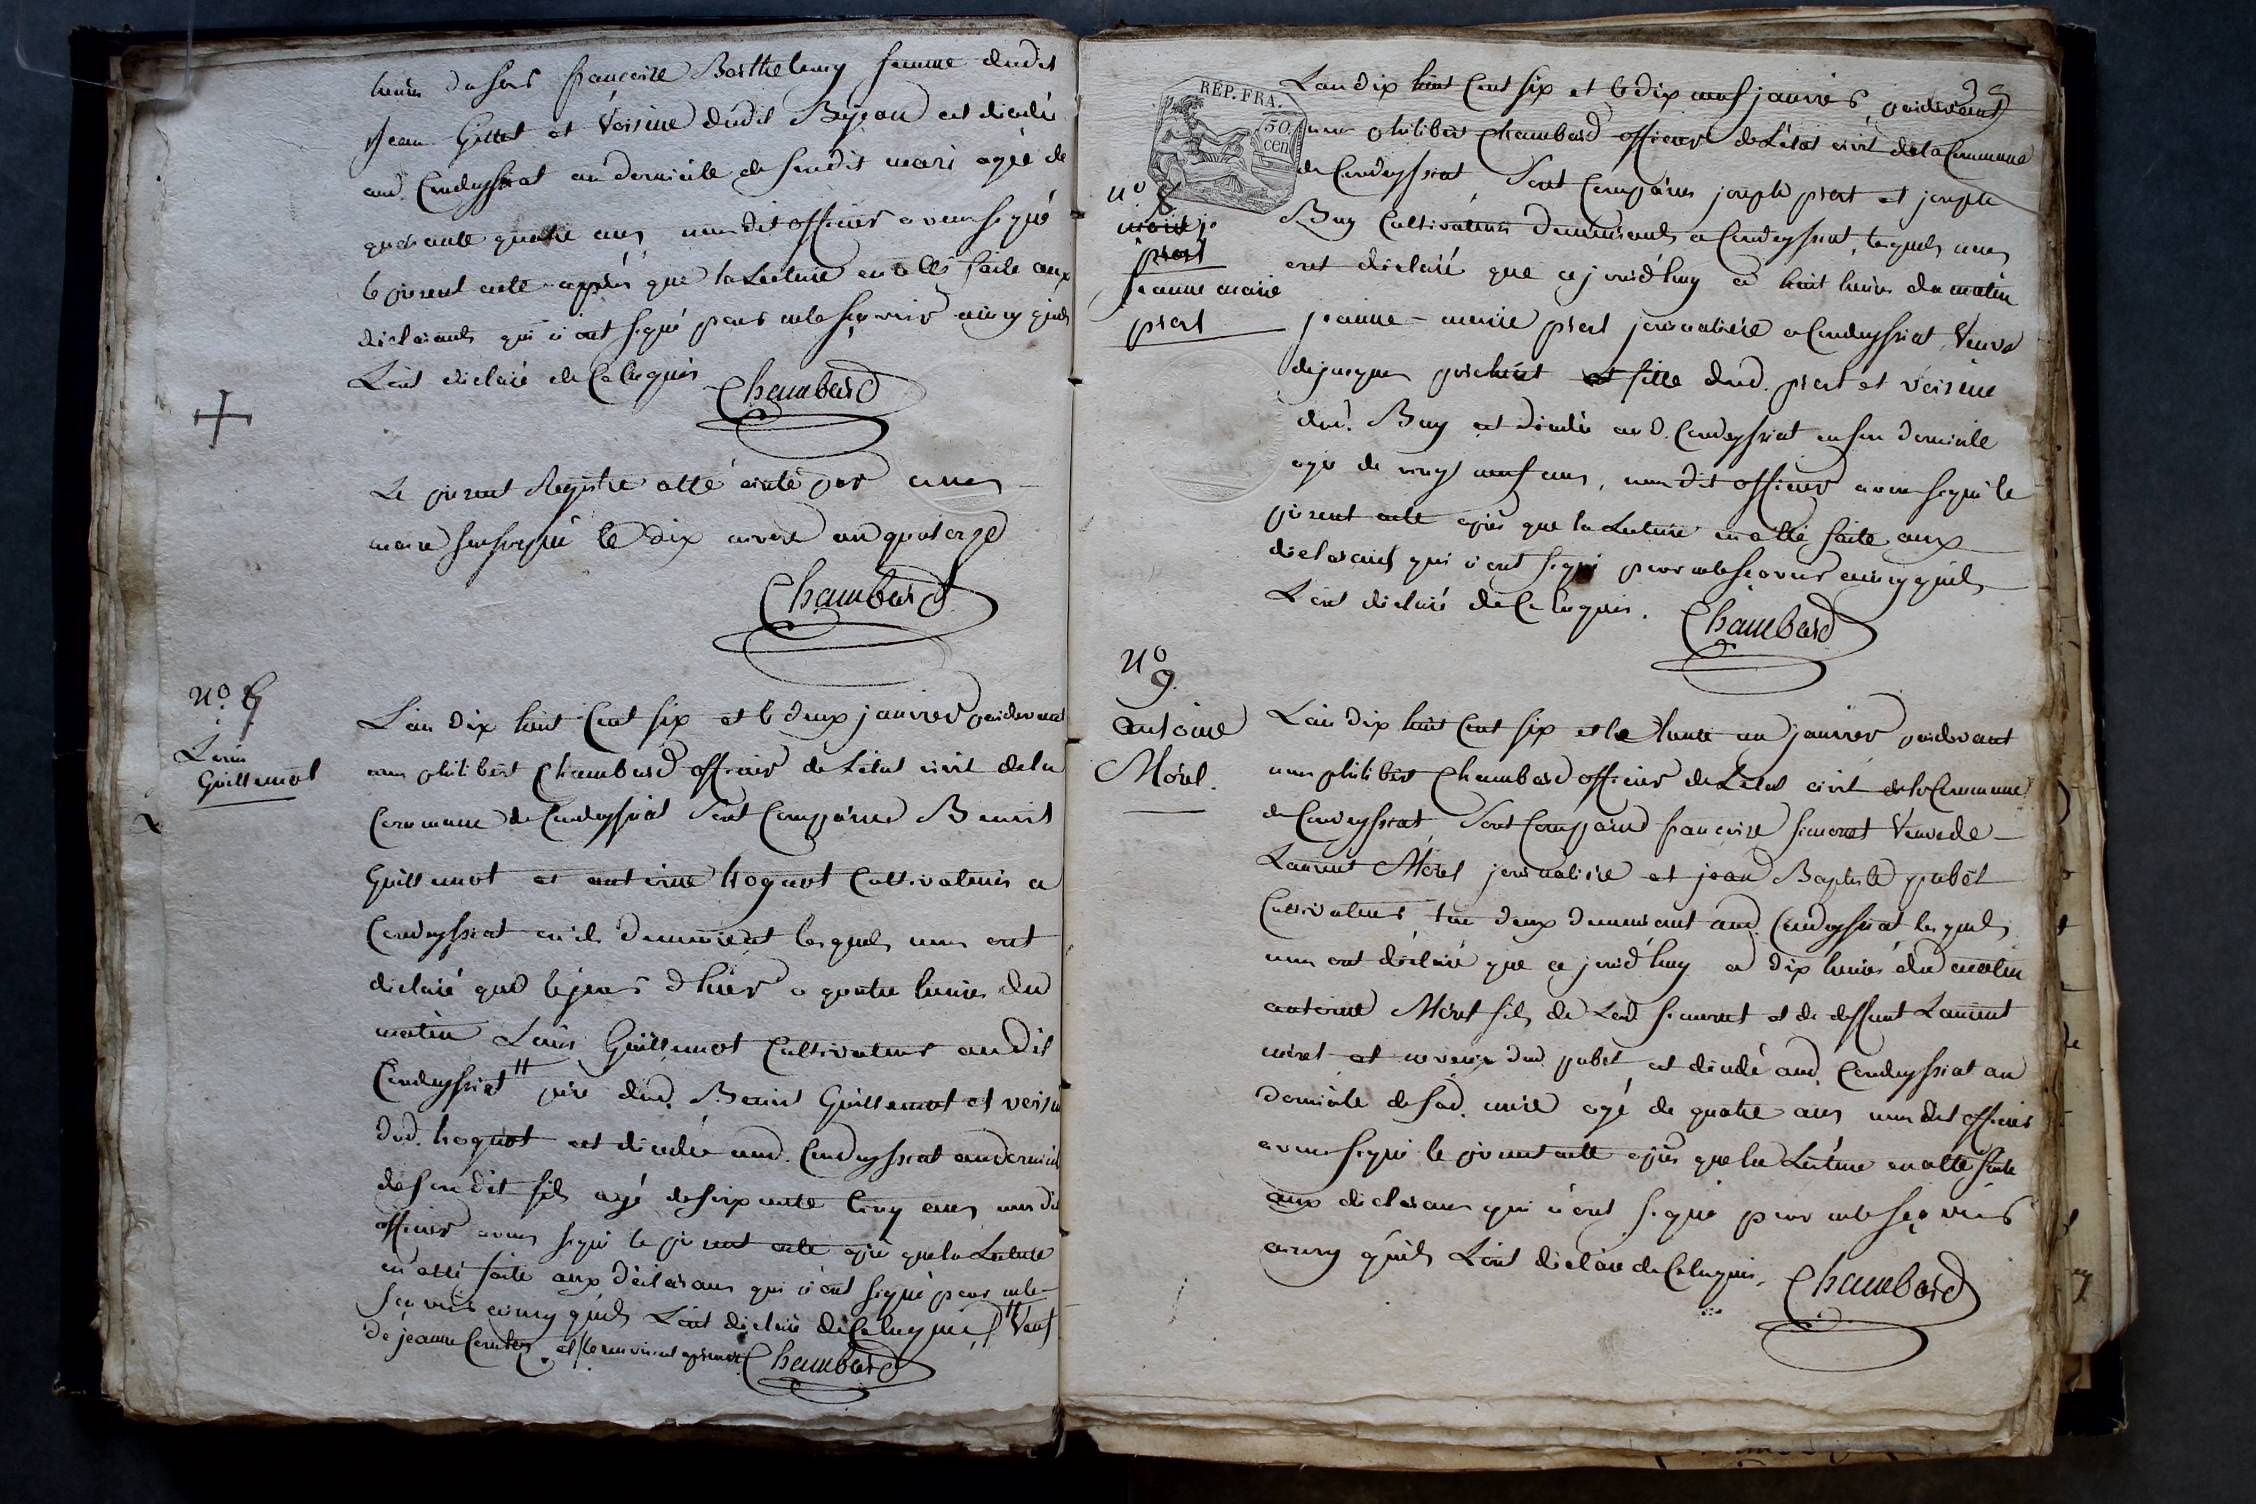 heures du soir françoise Barthelemy femme dudit
Jean Gillet et Voisine dudit Bejean est décédée
aud. Condeyssiat au domicile de sondit mari agée de
quarante quatre ans, nous dit officier avons signé
le present acte apprés que la Lecture en a été faite aux
déclarants qui n'ont signé pour ne le sçavoir ainsy quils
L'ont déclaré de Ce Enquis Chambard
Le present Registre a été arrêté par nous
maire soussigné le dix nivose an quatorze
Chambard
N.o
Louis
Guillemot
L'an dix huit Cent six et le deux janvier pardevant
nous philibert Chambard officier de L'état civil de la
Commune de Condeyssiat Sont Comparus Benoit
Guillemot et antoine hoguot Cultivateurs a
Condeyssiat où ils demeurent lesquels nous ont
déclaré que le jour d'hier a quatre heures du
matin Louis Guillemot Cultivateur audit
Condeyssiat # pere dud. Benoit Guillemot et voisin
dud. hoguot est décédé aud. Condeyssiat au domicile
de son dit fils agé de soixante Cinq ans nous dit
officier avons signé le present acte aprés que la Lecture
en a été faite aux déclarans qui n'ont signé pour ne le
sçavoir ainsy quils L'ont déclaré de Ce Enquis, # Veuf
de jeanne
Chambard
RÉP. FRA.
50
cen
L'an dix huit Cent six et le dix neuf janvier, pardevant
nous philibert Chambard officier de L'état civil de la Commune
de Condeyssiat, Sont Comparus joseph piert et joseph
Buy Cultivateurs demeurants a Condeyssiat, lesquels nous
ont déclaré que cejourd'huy a huit heures du matin
jeanne-marie piert journaliere a Condeyssiat Veuve
de jacques et fille dud. piert et voisine
dud. Buy est décédée aud. Condeyssiat en son domicile
agée de vingt neuf ans, nous dit officier avons signé le
present acte aprés que la Lecture en a été faite aux
déclarants qui n'ont signé pour ne le sçavoir ainsy quils
L'ont déclaré de Ce Enquis. Chambard
N.o 8
piert
jeanne marie
piert
N.o
9
antoine
Morel.
L'an dix huit Cent six et le trente un janvier pardevant
nous philibert Chambard officier de L'état civil de la Commune
de Condeyssiat, Sont Comparus françoise simonet Veuve de
Laurent Morel journaliere et jean Baptiste pubet
Cultivateur tou deux demeurant aud. Condeyssiat lesquels
nous ont déclaré que cejourd'huy a dix heures du matin
antoine Morel fils de Lad. simonet et de deffunt Laurent
morel et dud. pubet est décédé aud. Condeyssiat au
domicile de sad. mere agé de quatre ans nous dit officier
avons signé le present acte aprés que la Lecture en a été faite
aux déclarans qui n'ont signé pour ne le sçavoir
ainsy quils L'ont déclaré de Ce Enquis. Chambard